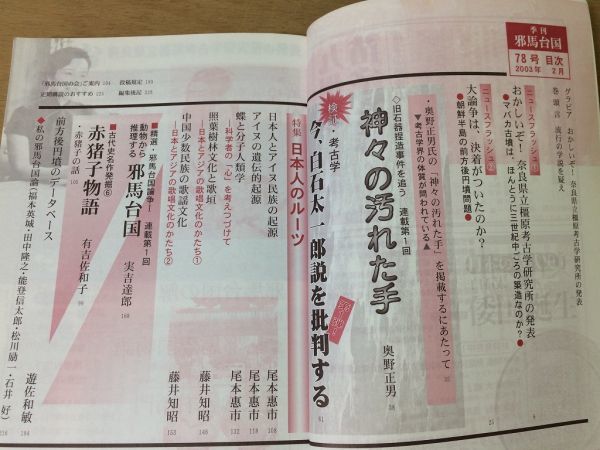 季刊
邪馬台国
78号 目次
2003年 2月
グラビア おかしいぞ!奈良県立橿原考古学研究所の発表
巻頭言 流行を疑え
ニュースフラッシュ①
おかしいぞ!奈良県立橿原考古学研究所の発表
●マバカ古墳は、ほんとうに三世紀中ごろの築造なのか?●
ニュースフラッシュ②
大論争は、決着がついたのか?
●朝鮮半島の前方後円墳問題●
・奥野正男氏の「神々の汚れた手」を掲載するにあたって
▼考古学界の体質が問われている▲
◇旧石器捏造事件を追う 連載第1回
神々の汚れた手
奥野正男
検証・考古学
今、白石太一郎説を批判する
61
特集 日本人のルーツ
日本人とアイヌ民族の起源
尾本惠市
108
アイヌの遺伝的起源
尾本惠市
118
蝶と分子人類学
科学者の「心」を考えつづけて
尾本惠市
132
照葉樹林文化と歌垣
―日本とアジアの歌唱文化のかたち①
藤井知昭
146
中国少数民族の歌謡文化
―日本とアジアの歌唱文化のかたち②
藤井知昭
153
■精選・邪馬台国論争― 連載第1回
動物から推理する 邪馬台国
実吉達郎
160
■古代史名作発掘⑥
赤猪子物語
・赤猪子の話
有吉佐和子
前方後円墳のデータベース
遊佐和敏
184
◇私の邪馬台国論(福本英城・田中隆之・能登信太郎・松川勵一・石井 好)
216
「邪馬台国の会」ご案内 104
投稿規定 199
定期購読のおすすめ 225
編集後記